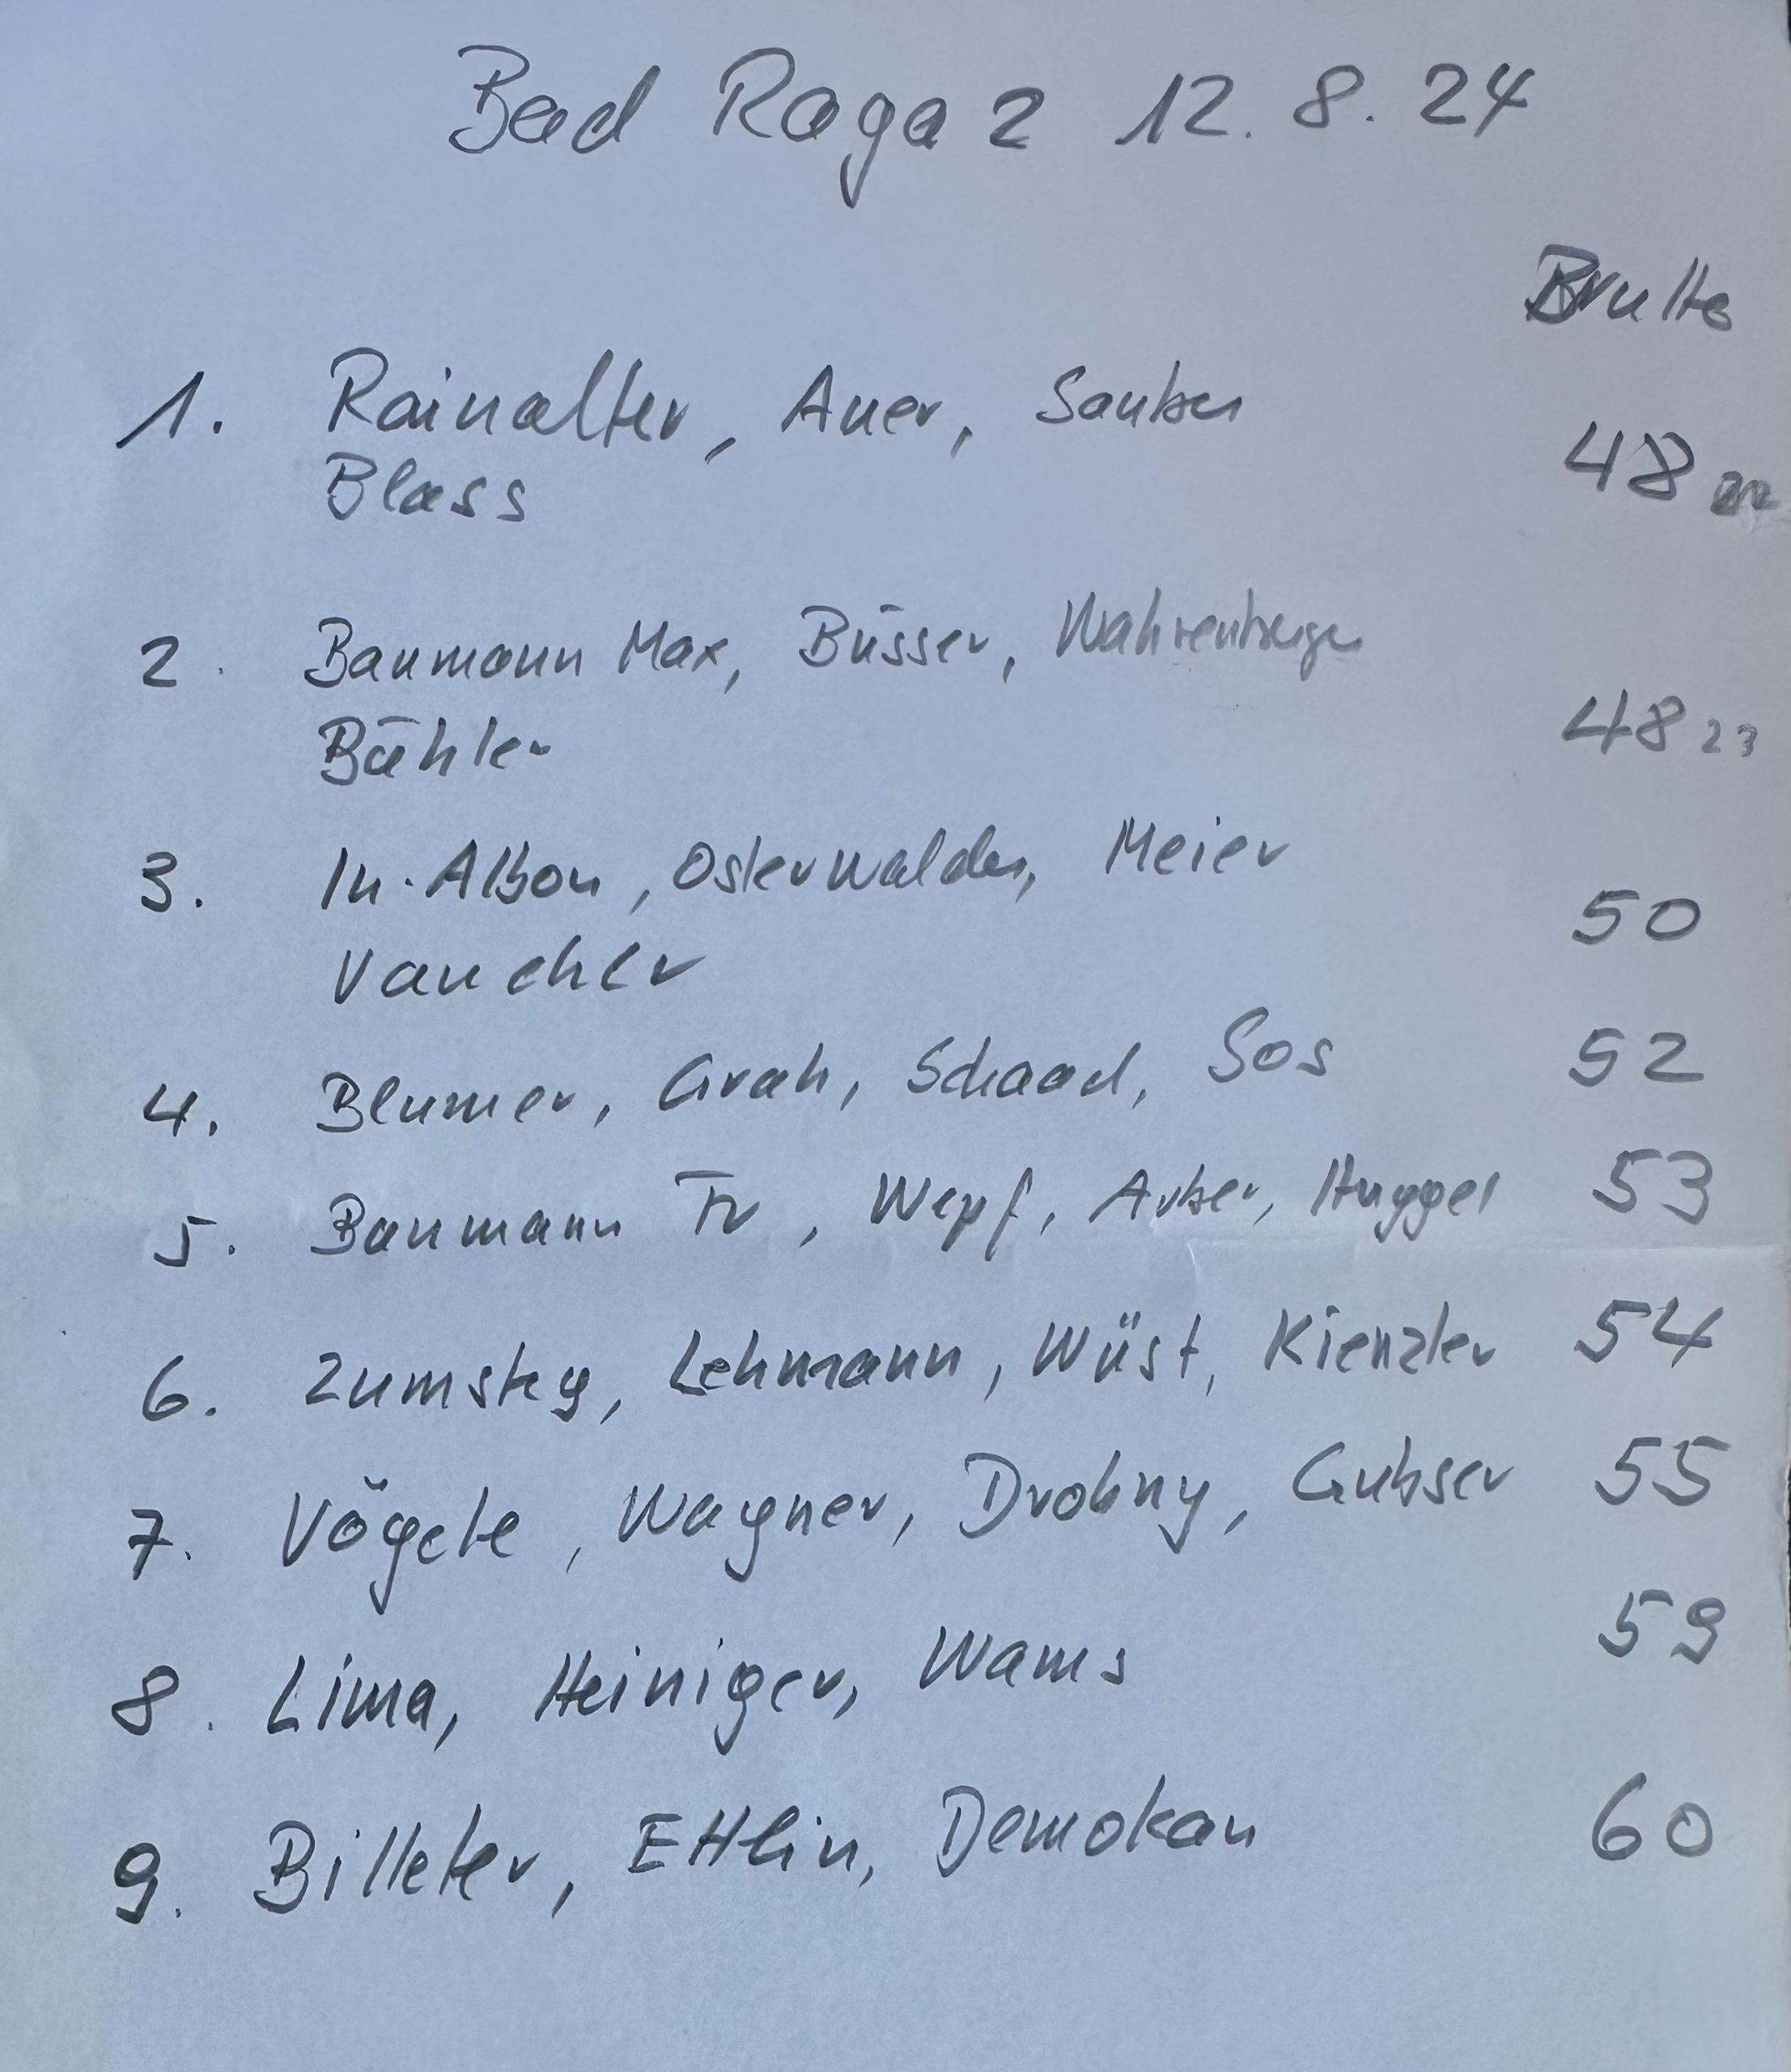 Bad Ragaz 12.8.24
Brutto
1. Rainalter, Auer, Sauber
Blass 48 22
2. Baumann Max, Büsser, Wahrenberger
Bühler 48 23
3. In-Albon, Osterwalder, Meier
50
Vaucher
4. Blumer, Grah, Schaad, Sos 52
5. Baumann Fr, Wepf, Arber, Huggel 53
6. Zumsteg, Lehmann, Wüst, Kienzler 54
7. Vögele, Wagner, Drobny, Gubser 55
8. Lima, Heiniger, Wams 59
9. Billeter, Ettlin, Demokan 60